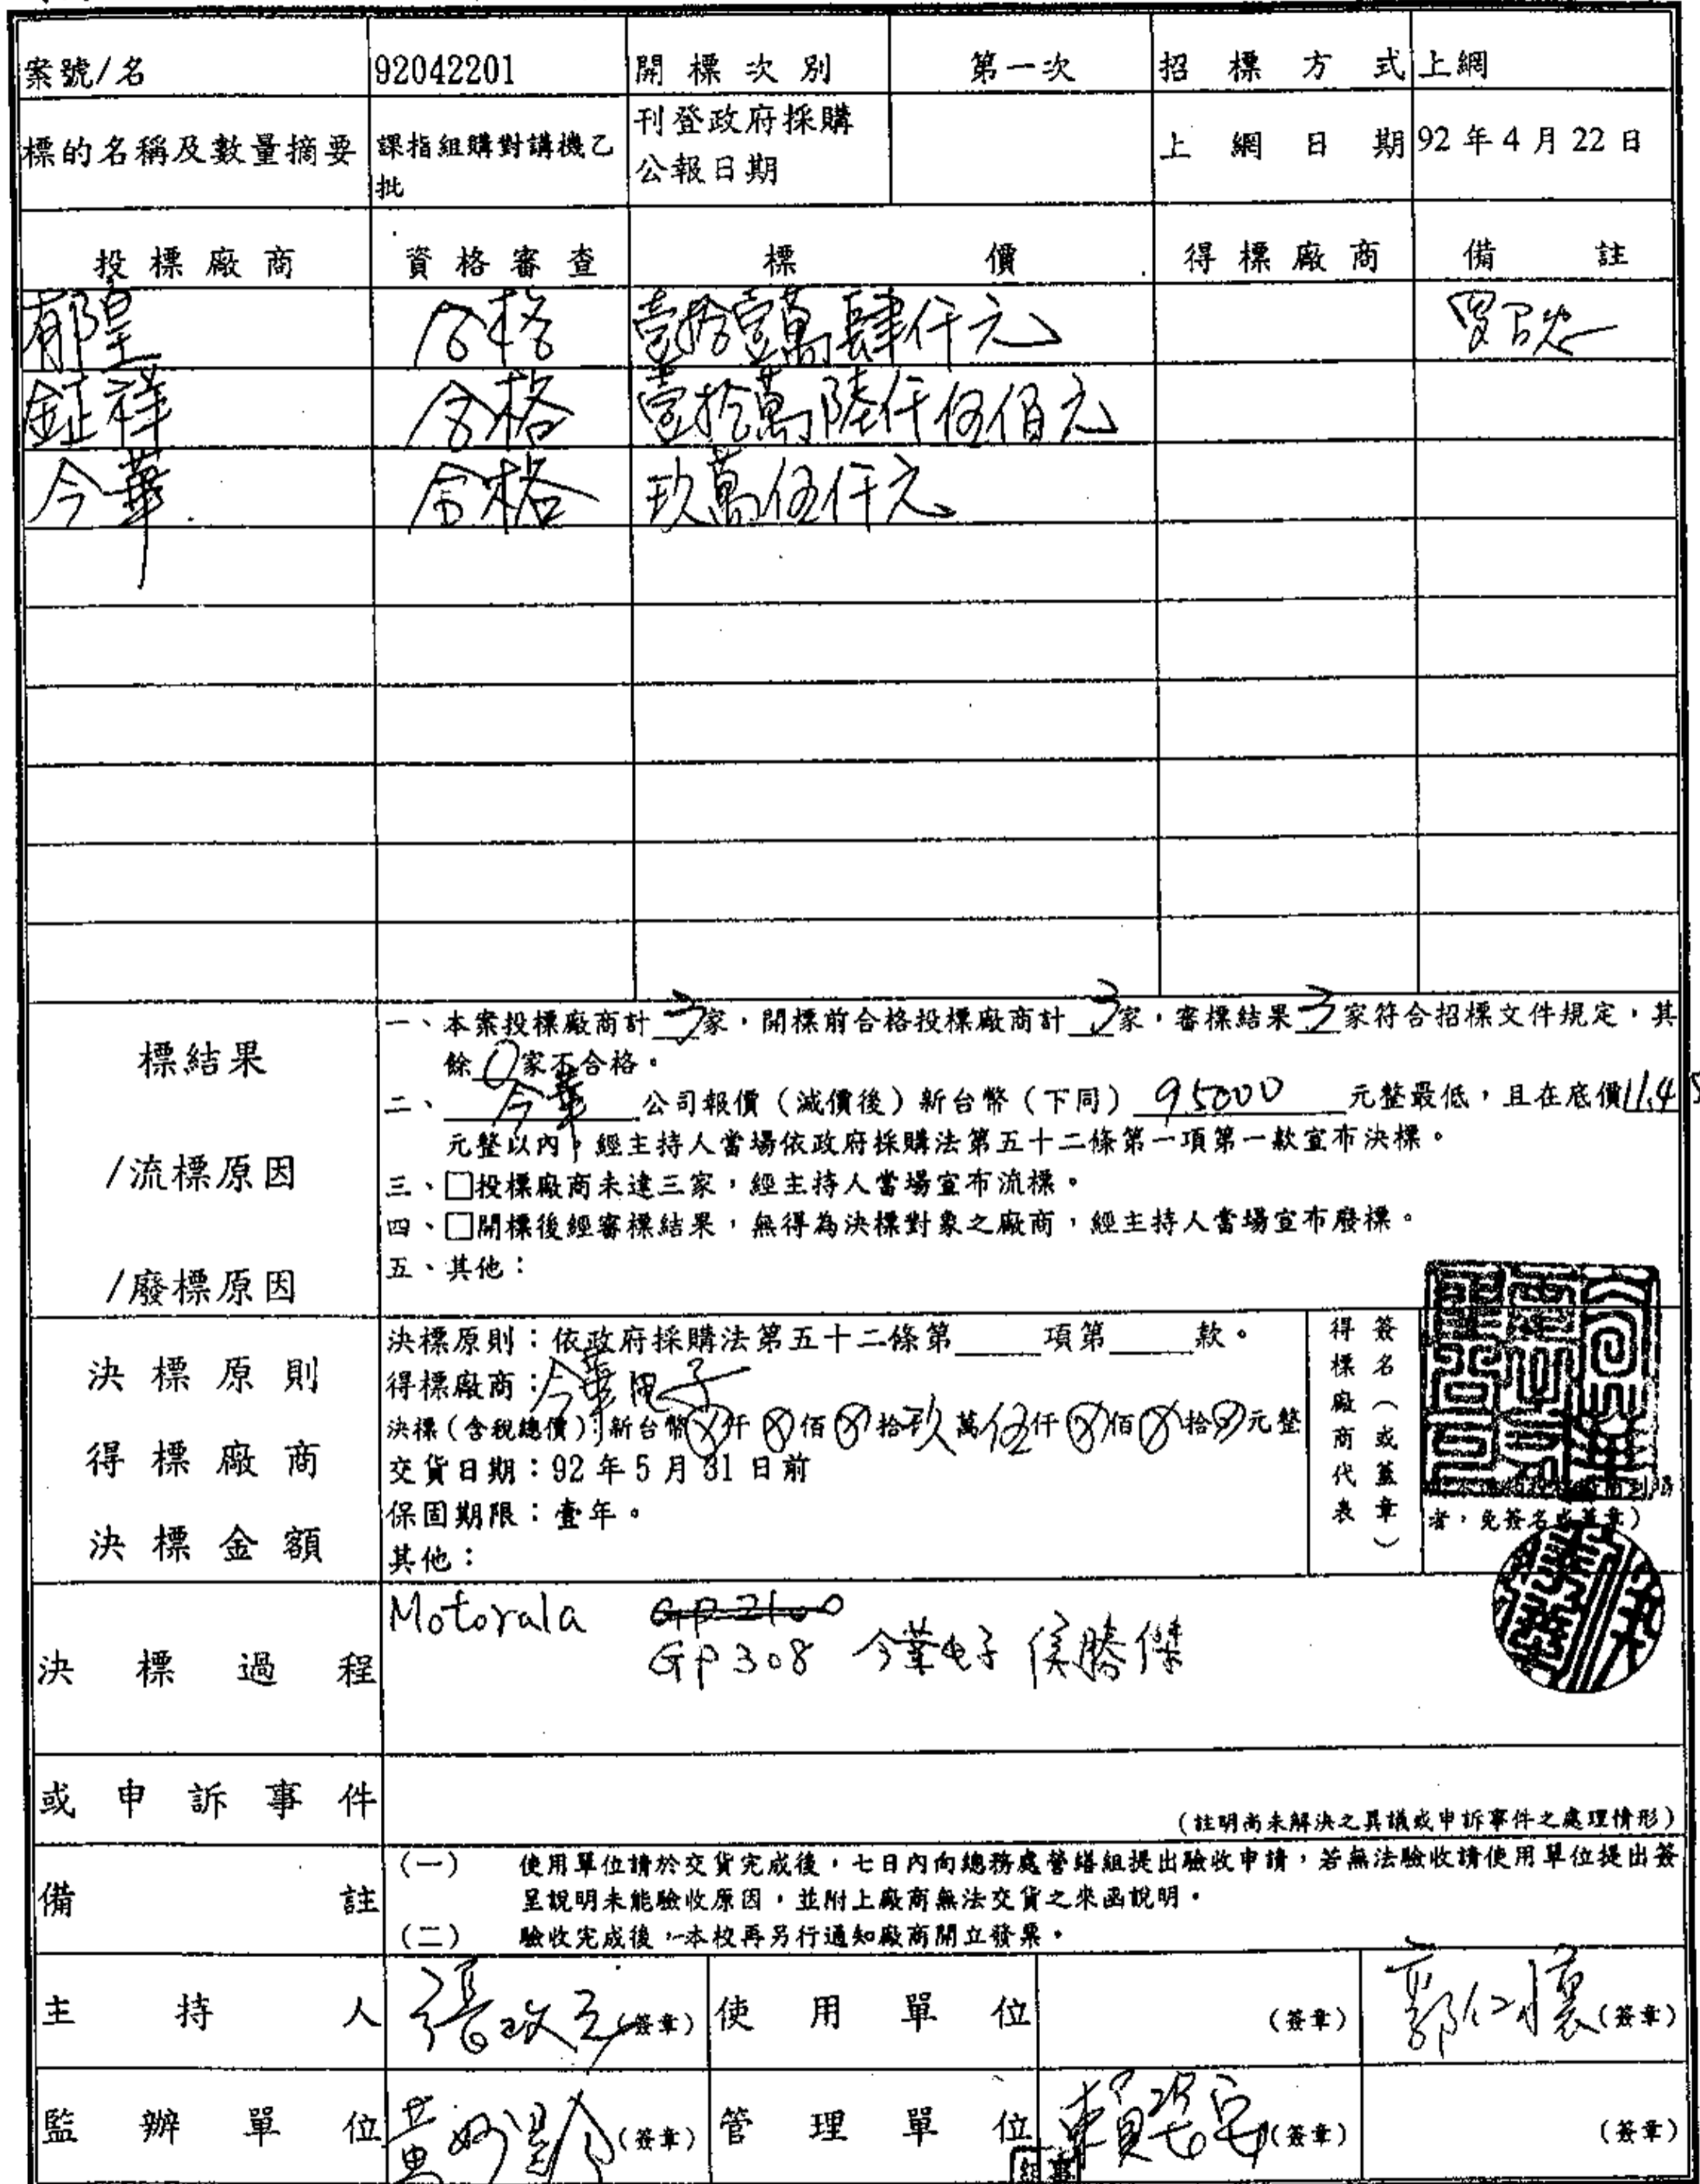 案號/名 92042201 開標次別 第一次 招標方式 上網
標的名稱及數量摘要 課指組購對講機乙批 刊登政府採購公報日期 上網日期 92年4月22日
投標廠商 資格審查 標價 得標廠商 備註
郁皇 合格 壹拾壹萬肆仟元
鉦祥 合格 壹拾萬陸仟伍佰元
今華 合格 玖萬伍仟元
標結果
/流標原因
/廢標原因
一、本案投標廠商計3家，開標前合格投標廠商計3家，審標結果3家符合招標文件規定，其
餘0家不合格。
二、今華公司報價（減價後）新台幣（下同）95000元整最低，且在底價
元整以內，經主持人當場依政府採購法第五十二條第一項第一款宣布決標。
三、□投標廠商未達三家，經主持人當場宣布流標。
四、□開標後經審標結果，無得為決標對象之廠商，經主持人當場宣布廢標。
五、其他：
決標原則
得標廠商
決標金額
決標原則：依政府採購法第五十二條第____項第____款。
得標廠商：今華电子
決標（含稅總價）新台幣⊗仟⊗佰⊗拾玖萬伍仟⊗佰⊗拾⊗元整
交貨日期：92年5月31日前
保固期限：壹年。
其他：
得標廠商代表
簽名（或蓋章）
者，免簽名或蓋章）
決標過程
Motorala GP2100
GP308 今華电子 侯勝傑
或申訴事件
（註明尚未解決之異議或申訴事件之處理情形）
備註
（一） 使用單位請於交貨完成後，七日內向總務處營繕組提出驗收申請，若無法驗收請使用單位提出簽
呈說明未能驗收原因，並附上廠商無法交貨之來函說明。
（二） 驗收完成後，本校再另行通知廠商開立發票。
主持人 (簽章) 使用單位 (簽章) 郭仁懷 (簽章)
監辦單位 (簽章) 管理單位 (簽章) (簽章)